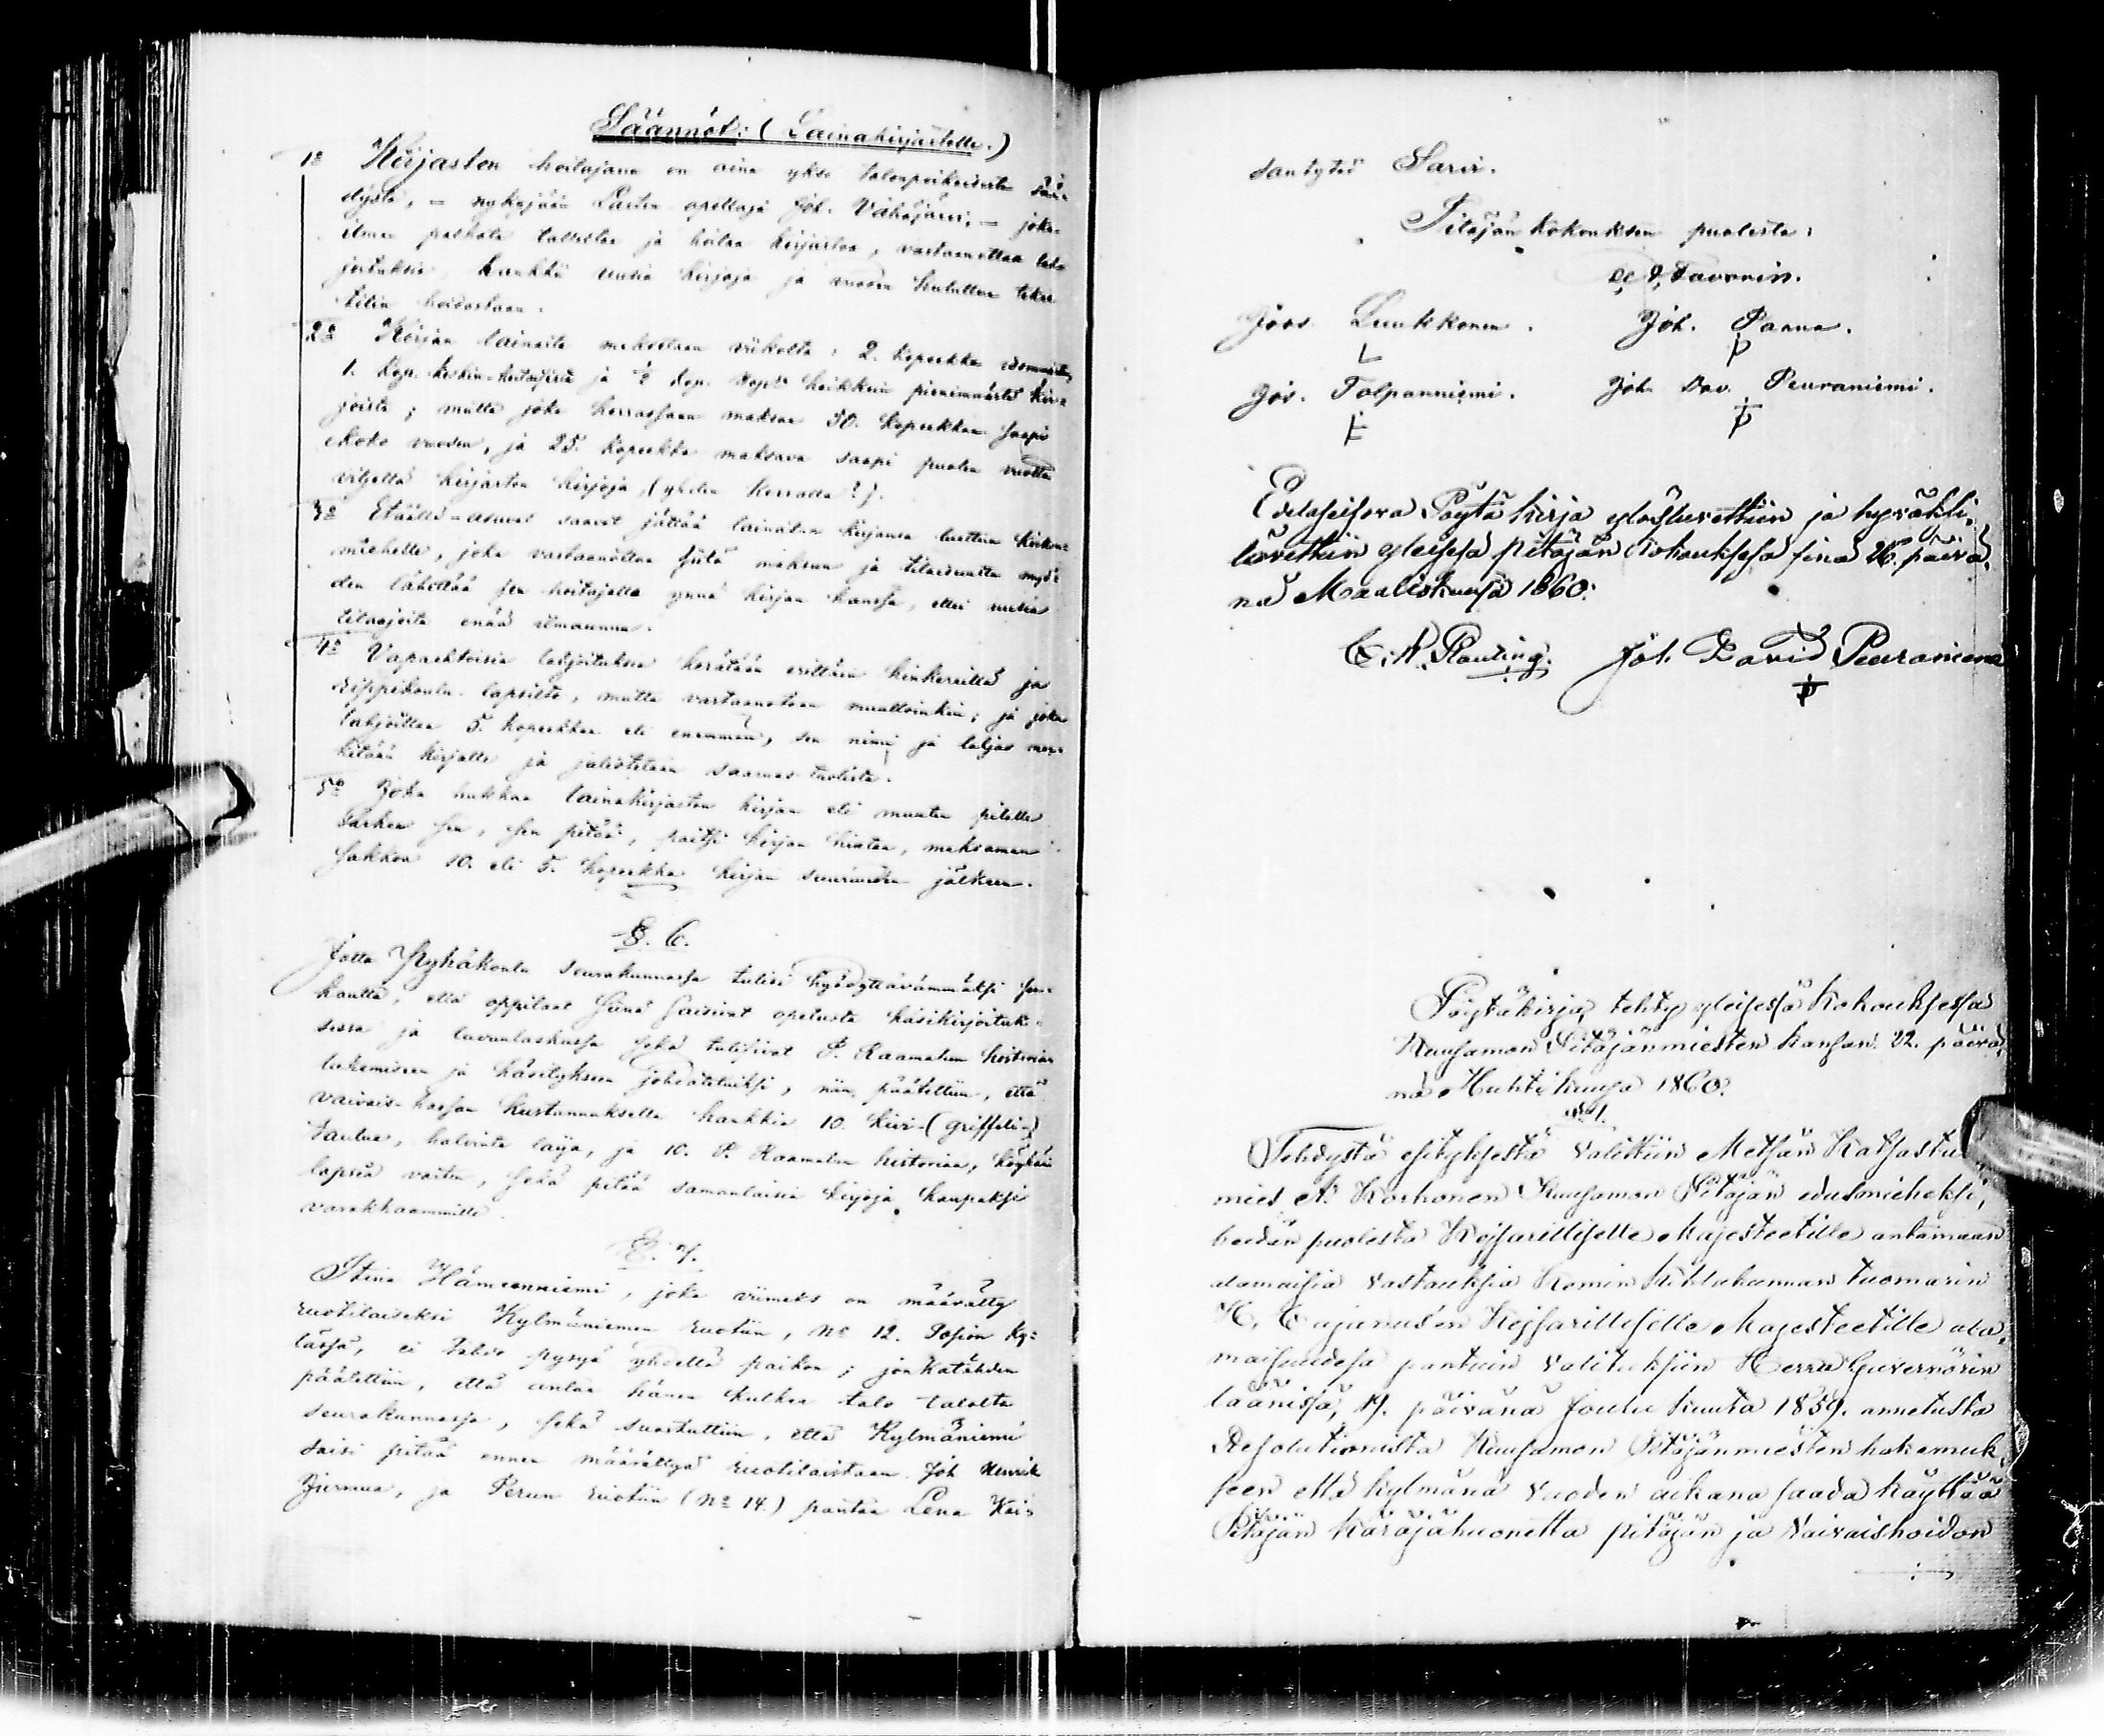 Säännöt: (Lainakirjastolle.)
1o Kirjaston hoitajana on aina yksi talonpoikaisesta sää-
dystä, – nykyjään Lasten-opettaja Joh. Vähäjärvi, – joka
ilman palkata tallettaa ja hoitaa kirjastoa, vastaanottaa lah-
joituksia, hankkii uusia kirjoja ja vuoden kuluttua tekee
tilin hoidostaan.
2o Kirjan lainasta maksetaan viikolta: 2. kopeekka isommista,
1. Kop. keskin-kertaisista ja ½ Kop. kaikkein pienimmästä kir-
joista; mutta joka kerrassaan maksaa 50. kopeekkaa saapi
koko vuoden, ja 25. kopeekka maksava saapi puolen vuotta
viljellä kirjaston kirjoja (yhden kerralla?).
3o Etäällä-asuvat saavat jättää lainatun kirjansa luettua kirkon-
miehelle, joka vastaanottaa siitä maksun ja tilaisuutta myö-
den lähettää sen hoitajalle ynnä kirjan kanssa, ellei uusia
tilaajoita enää ilmaannu.
4o Vapaehtoisia lahjoituksia kerätään erittäin kinkereillä ja
rippikoulu-lapsilta, mutta vastaanotetaan muulloinkin; ja joka
lahjoittaa 5. kopeekkaa eli enemmän, sen nimi ja lahjas mer-
kitään kirjalle ja julistetaan saarnas-tuolista.
5o Joka hukkaa lainakirjaston kirjan eli muuten pitelle
särkee sen, sen pitää, paitsi kirjan hintaa, maksaman
sakkoa 10. eli 5. kopeekka kirjan suuruuden jälkeen.
§. 6.
Jotta Pyhäkoulu seurakunnassa tulisi hyödyttävämmäksi sen
kautta, että oppilaat siinä saisivat opetusta käsikirjoituk-
sessa ja luvunlaskussa sekä tulisivat P. Raamatun historian
lukemiseen ja käsitykseen johdatetuiksi, niin päätettiin, että
vaivais-kassan kustannuksella hankkia 10. kivi-(griffeli-)
taulua, halvinta laija, ja 10. P. Raamatun historiaa, köyhäin
lapsia varten, sekä pitää samanlaisia kirjoja kaupaksi
varakkaammille.
§. 7.
Stina Hämeenniemi, joka viimeks on määrätty
ruotilaiseksi Kylmäniemen ruotiin, No 12. Posion ky-
lässä, ei tahdo pysyä yhdellä paikoa; jonkatähden
päätettiin, että antaa hänen kulkea talo talolta
seurakunnassa, sekä suostuttiin, että Kylmäniemi
saisi pitää ennen määrättyä ruotilaistaan Joh Henrik
Jurmua, ja Perun ruotiin (No 14.) pantaa Lena Kai-
santytär Sarvi.
Pitäjän kokouksen puolesta:
Joos. Luukkonen. Joh. Paanu.
Jos. Tolpanniemi. Joh. Dav. Peuraniemi.
Edelläseisova Pöytäkirja ylösluvettiin ja hyväksi-
luvettiin yleisessä pitäjän kokouksessa sinä 26. päivä-
nä Maaliskuussa 1860.
E. A. Rauting. Joh. David Peuraniemi
Pöytäkirja, tehty yleisessä Kokouksessa
Kuusamon Pitäjänmiesten kanssan 22. päivä-
nä Huhtikuussa 1860.
§ 1.
Tehdystä esityksestä valittiin Metsän Katsastus
mies A. Korhonen Kuusamon Pitäjän edusmieheksi,
heidän puolesta Keisarilliselle Majesteetille antamaan
alamaisia vastauksia Kemin Kihlakunnan tuomarin
K. Cajanus'en Keisarilliselle Majesteetille ala-
maisuudesa pantuin valituksiin Herra Guvernörin
läänisä, 19. päivänä Joulu kuuta 1859. annetusta
Resolutionista Kuusamon Pitäjänmiesten hakemuk-
seen että kylmänä vuoden aikana saada käyttää
Pitäjän käräjähuonetta pitäjän ja vaivaishoidon